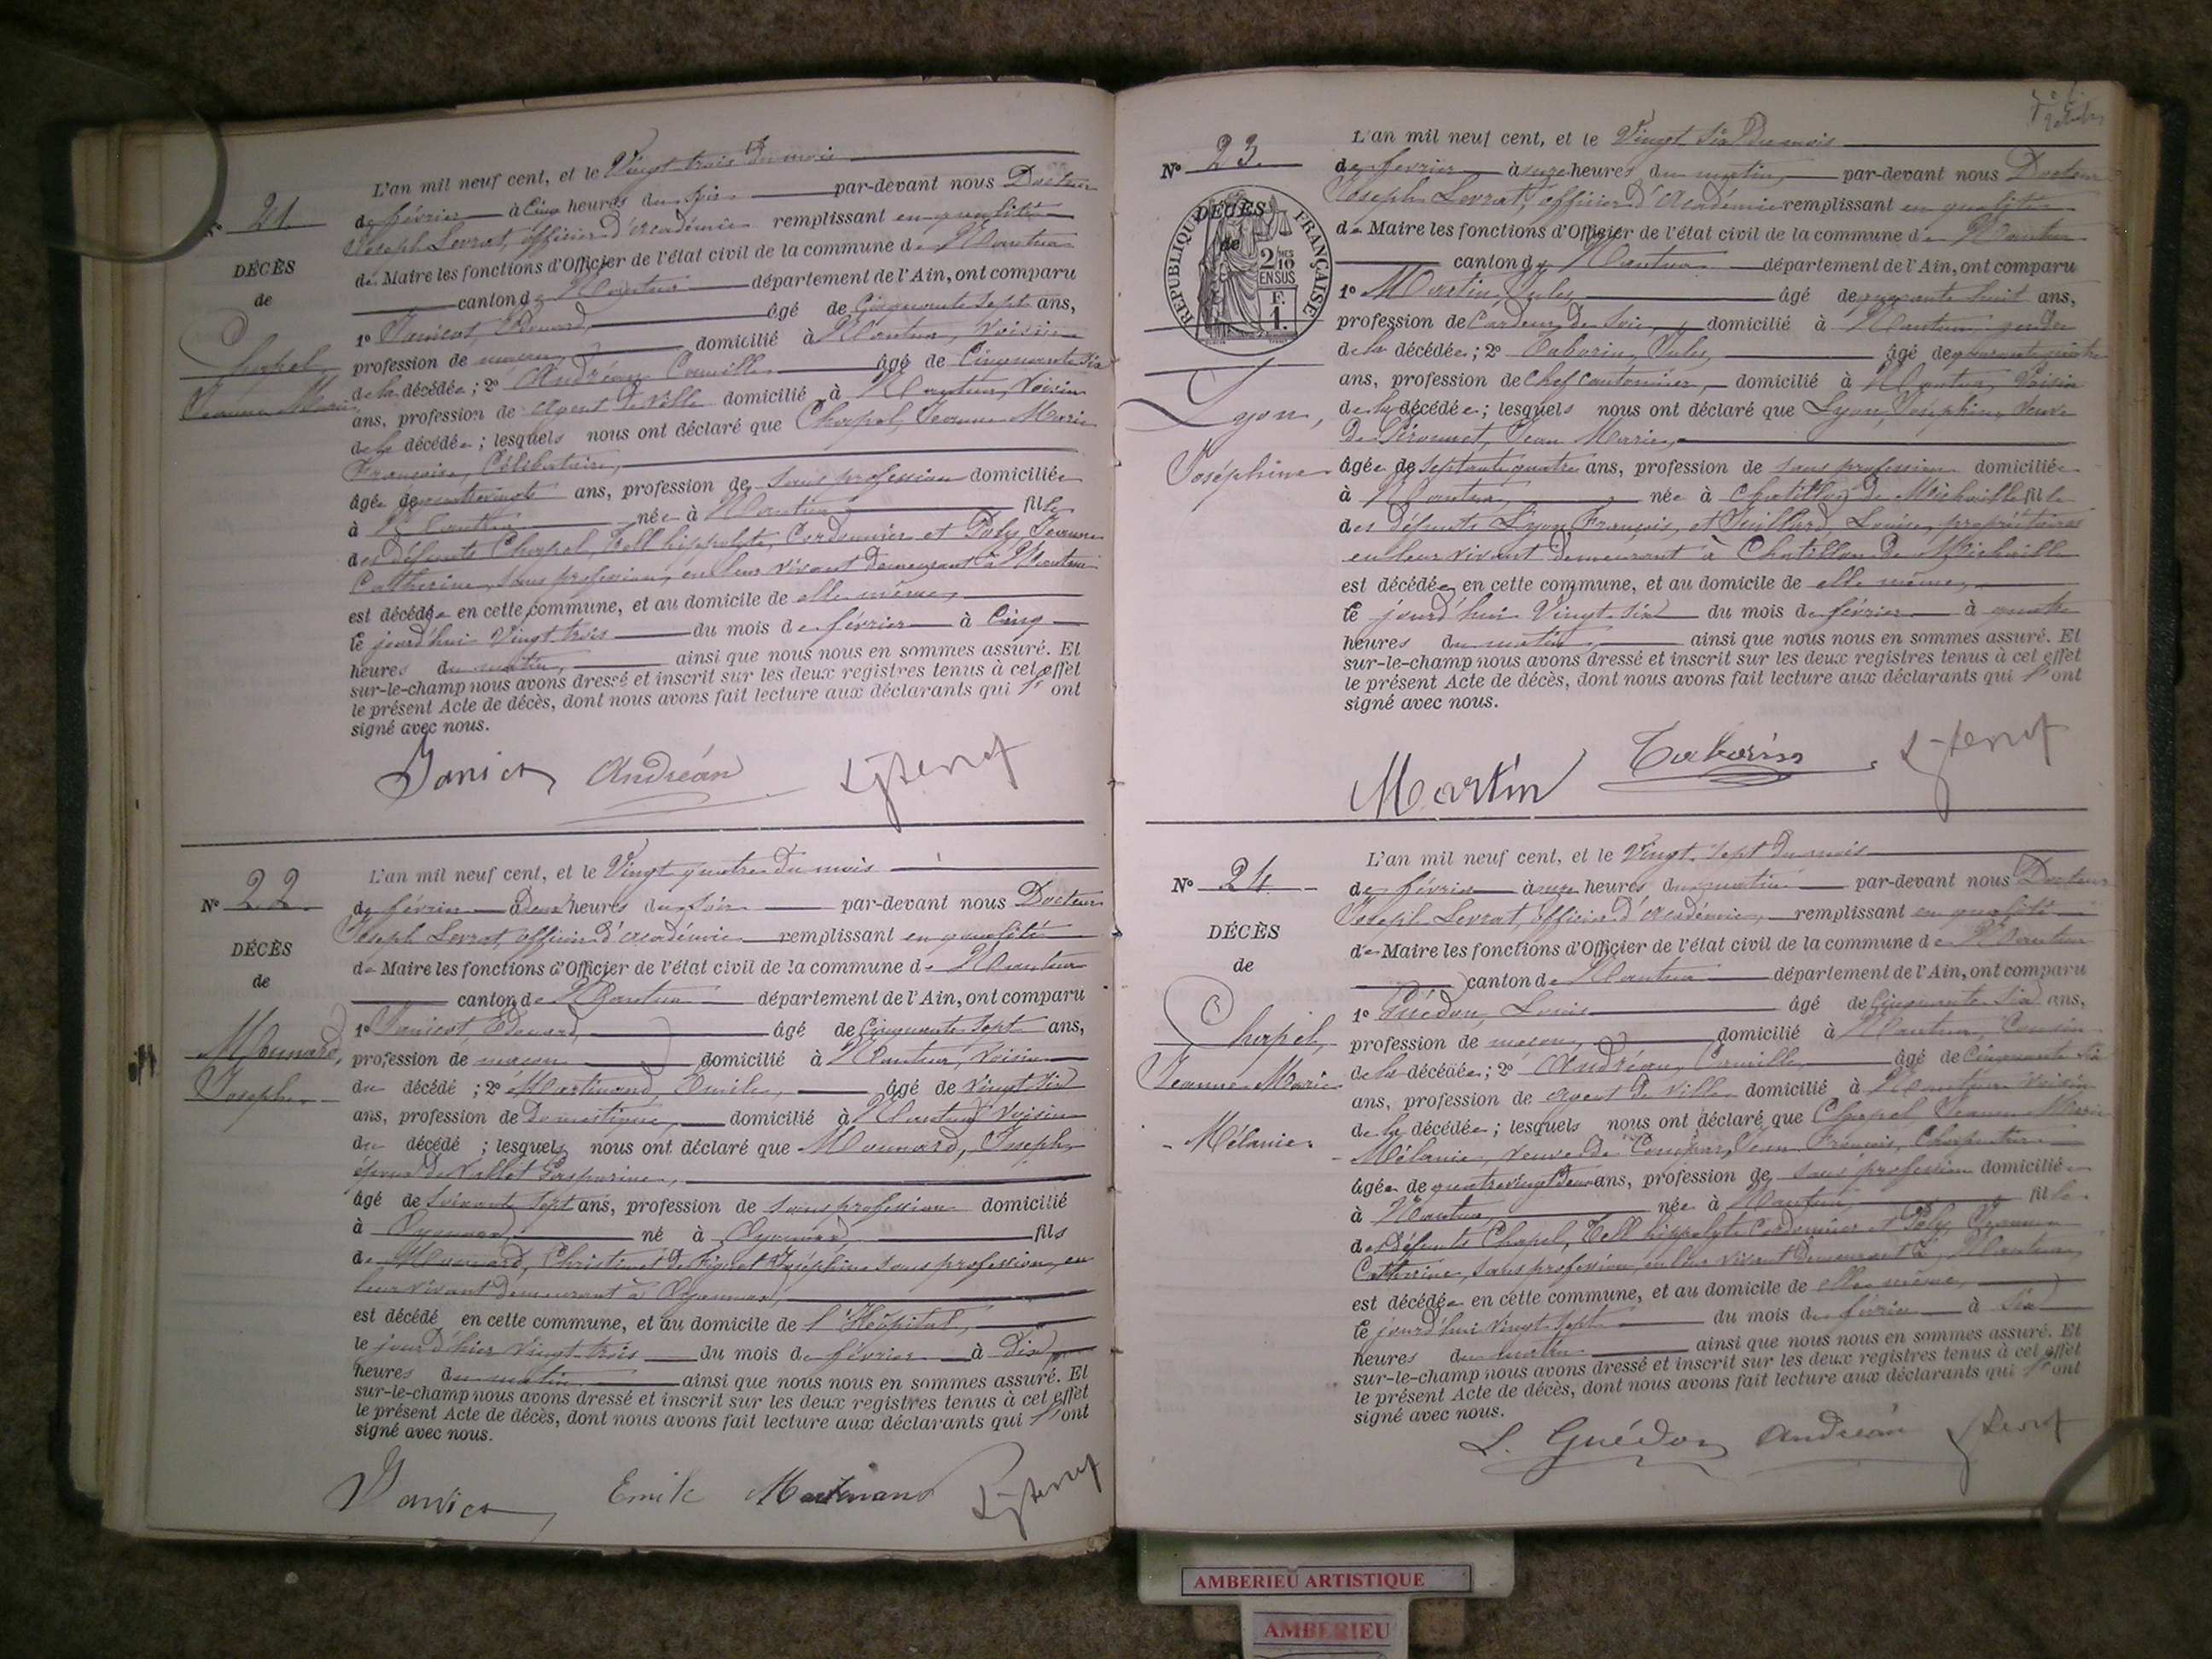 N° 21.
DÉCÈS
de
Chapel
Jeanne Marie
L'an mil neuf cent, et le Vingt trois du mois
de février à Cinq heures du soir par-devant nous Docteur
Joseph Levrat, officier d'académie remplissant en qualité
de Maire les fonctions d'Officier de l'état civil de la commune de Nantua
canton de Nantua département de l'Ain, ont comparu
1° Janicot, Edouard, âgé de Cinquante sept ans,
profession de maçon, domicilié à Nantua, voisin
de la décédée; 2° Andréan Camille âgé de Cinquante six
ans, profession de agent de ville domicilié à Nantua, voisin
de la décédée; lesquels nous ont déclaré que Chapel, Jeanne Marie
Françoise, Célibataire,
âgée de quatrevingts ans, profession de sans profession domiciliée
à Nantua née à Nantua fille
des défunts Chapel, Tell hippolyte, Cordonnier et Poly Jeanne
Catherine, sans profession, en leur vivant demeurant à Nantua
est décédée en cette commune, et au domicile de elle même,
le jourd'hui Vingt trois du mois de février à Cinq
heures du matin, ainsi que nous nous en sommes assuré. Et
sur-le-champ nous avons dressé et inscrit sur les deux registres tenus à cet effet
le présent Acte de décès, dont nous avons fait lecture aux déclarants qui l'ont
signé avec nous.
Janicot Andréan
N° 22.
DÉCÈS
de
Mounard,
Joseph
L'an mil neuf cent, et le Vingt quatre du mois
de février à deux heures du soir par-devant nous Docteur
Joseph Levrat, officier d'académie remplissant en qualité
de Maire les fonctions d'Officier de l'état civil de la commune de Nantua
canton de Nantua département de l'Ain, ont comparu
1° Janicot, Edouard, âgé de Cinquante sept ans,
profession de maçon domicilié à Nantua, voisin
du décédé; 2° Martinand, Emile, âgé de vingt six
ans, profession de Domestique, domicilié à Nantua voisin
du décédé; lesquels nous ont déclaré que Mounard, Joseph,
époux de Vallet Gasparine,
âgé de soixante sept ans, profession de sans profession domicilié
à Oyonnax, né à Oyonnax, fils
de Mounard, Christin et de Joséphine sans profession, en
leur vivant demeurant à Oyonnax,
est décédé en cette commune, et au domicile de l'Hôpital,
le jour d'hier Vingt trois du mois de février à Dix
heures du matin ainsi que nous nous en sommes assuré. Et
sur-le-champ nous avons dressé et inscrit sur les deux registres tenus à cet effet
le présent Acte de décès, dont nous avons fait lecture aux déclarants qui l'ont
signé avec nous.
Janicot Emile Martinand
N° 23.
RÉPUBLIQUE FRANÇAISE
2/10 EN SUS
F. 1.
DÉCÈS
de
Lyon,
Joséphine
L'an mil neuf cent, et le Vingt six du mois
de février à onze heures du matin, par-devant nous Docteur
Joseph Levrat, officier d'Académie remplissant en qualité
de Maire les fonctions d'Officier de l'état civil de la commune de Nantua
canton de Nantua département de l'Ain, ont comparu
1° Martin, Jules âgé de quarante huit ans,
profession de Cardeur de soie, domicilié à Nantua, gendre
de la décédée; 2° Taborin, Jules, âgé de quarante quatre
ans, profession de Chef cantonnier, domicilié à Nantua, Voisin
de la décédée; lesquels nous ont déclaré que Lyon, Joséphine, Veuve
de Péronnet, Jean Marie,
âgée de septante quatre ans, profession de sans profession domiciliée
à Nantua, née à Chatillon de Michaille fille
des défunts Lyon François, et Juillard, Louise, propriétaires
en leur vivant demeurant à Chatillon de Michaille
est décédée en cette commune, et au domicile de elle même,
le jourd'hui Vingt six du mois de février à quatre
heures du matin, ainsi que nous nous en sommes assuré. Et
sur-le-champ nous avons dressé et inscrit sur les deux registres tenus à cet effet
le présent Acte de décès, dont nous avons fait lecture aux déclarants qui l'ont
signé avec nous.
Martin Taborin
N° 24.
DÉCÈS
de
Chapel,
Jeanne Marie
Mélanie.
L'an mil neuf cent, et le Vingt sept du mois
de février à onze heures du matin par-devant nous Docteur
Joseph Levrat, officier d'académie, remplissant en qualité
de Maire les fonctions d'Officier de l'état civil de la commune de Nantua
canton de Nantua département de l'Ain, ont comparu
1° Guédon, Louis âgé de Cinquante six ans,
profession de maçon, domicilié à Nantua, Cousin
de la décédée; 2° Andréan, Camille, âgé de Cinquante six
ans, profession de agent de ville domicilié à Nantua voisin
de la décédée; lesquels nous ont déclaré que Chapel Jeanne Marie
Mélanie, veuve de Jean François, Charpentier
âgée de quatrevingt deux ans, profession de sans profession domiciliée
à Nantua, née à Nantua, fille
des défunts Chapel, Tell hippolyte Cordonnier et Poly, Jeanne
Catherine, sans profession, en leur vivant demeurant à Nantua,
est décédée en cette commune, et au domicile de elle même,
le jourd'hui vingt sept du mois de février à six
heures du matin ainsi que nous nous en sommes assuré. Et
sur-le-champ nous avons dressé et inscrit sur les deux registres tenus à cet effet
le présent Acte de décès, dont nous avons fait lecture aux déclarants qui l'ont
signé avec nous.
L. Guédon Andréan
AMBERIEU ARTISTIQUE
AMBERIEU